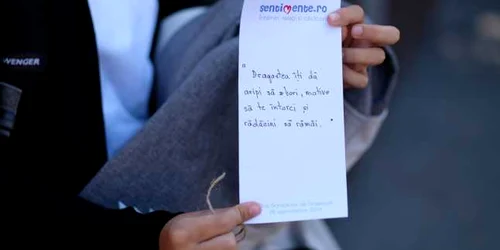 sentimente.ro
VENGER
"Dragostea îți dă
aripi să zbori, motive
să te întorci și
rădăcini să rămâi."